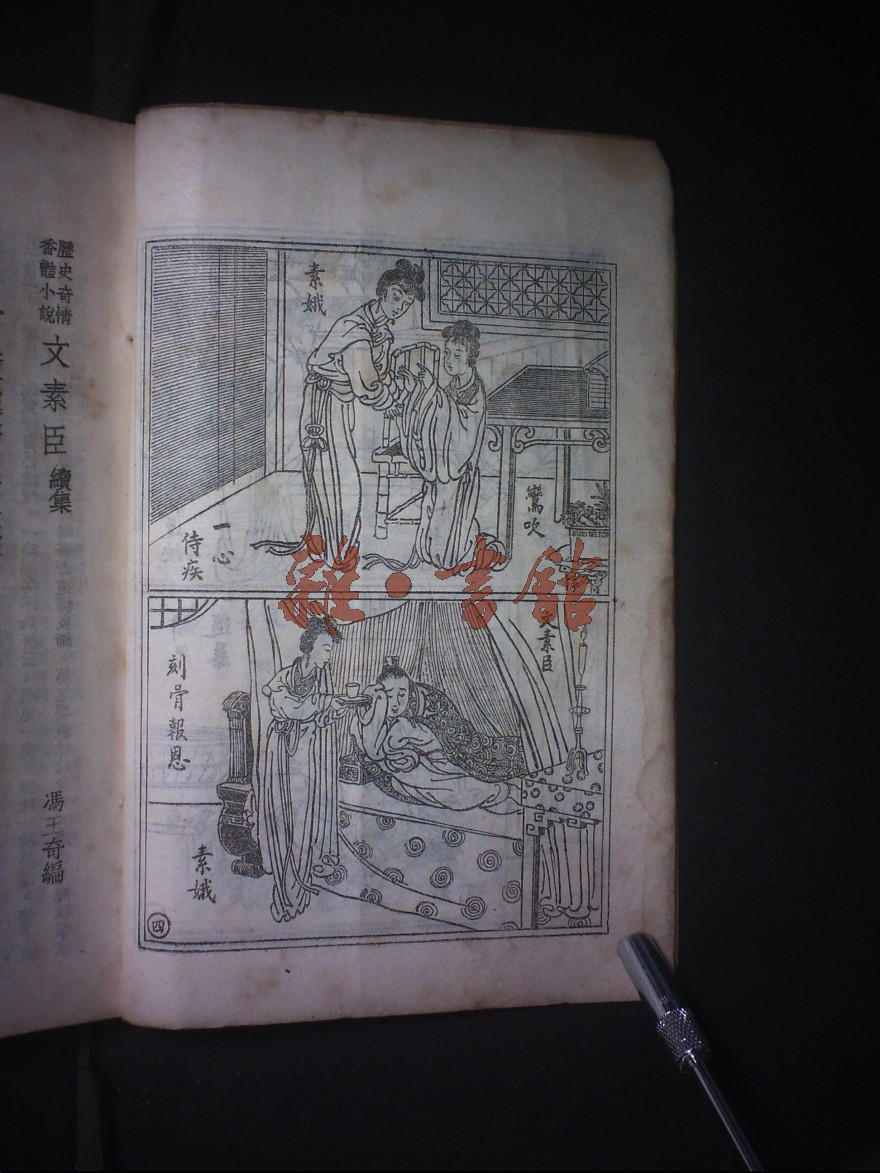 歷史奇情
香豔小說
文素臣 續集
馮玉奇編
素娥
鸞吹
一心
侍疾
雅·書館
文素臣
刻骨報恩
素娥
四